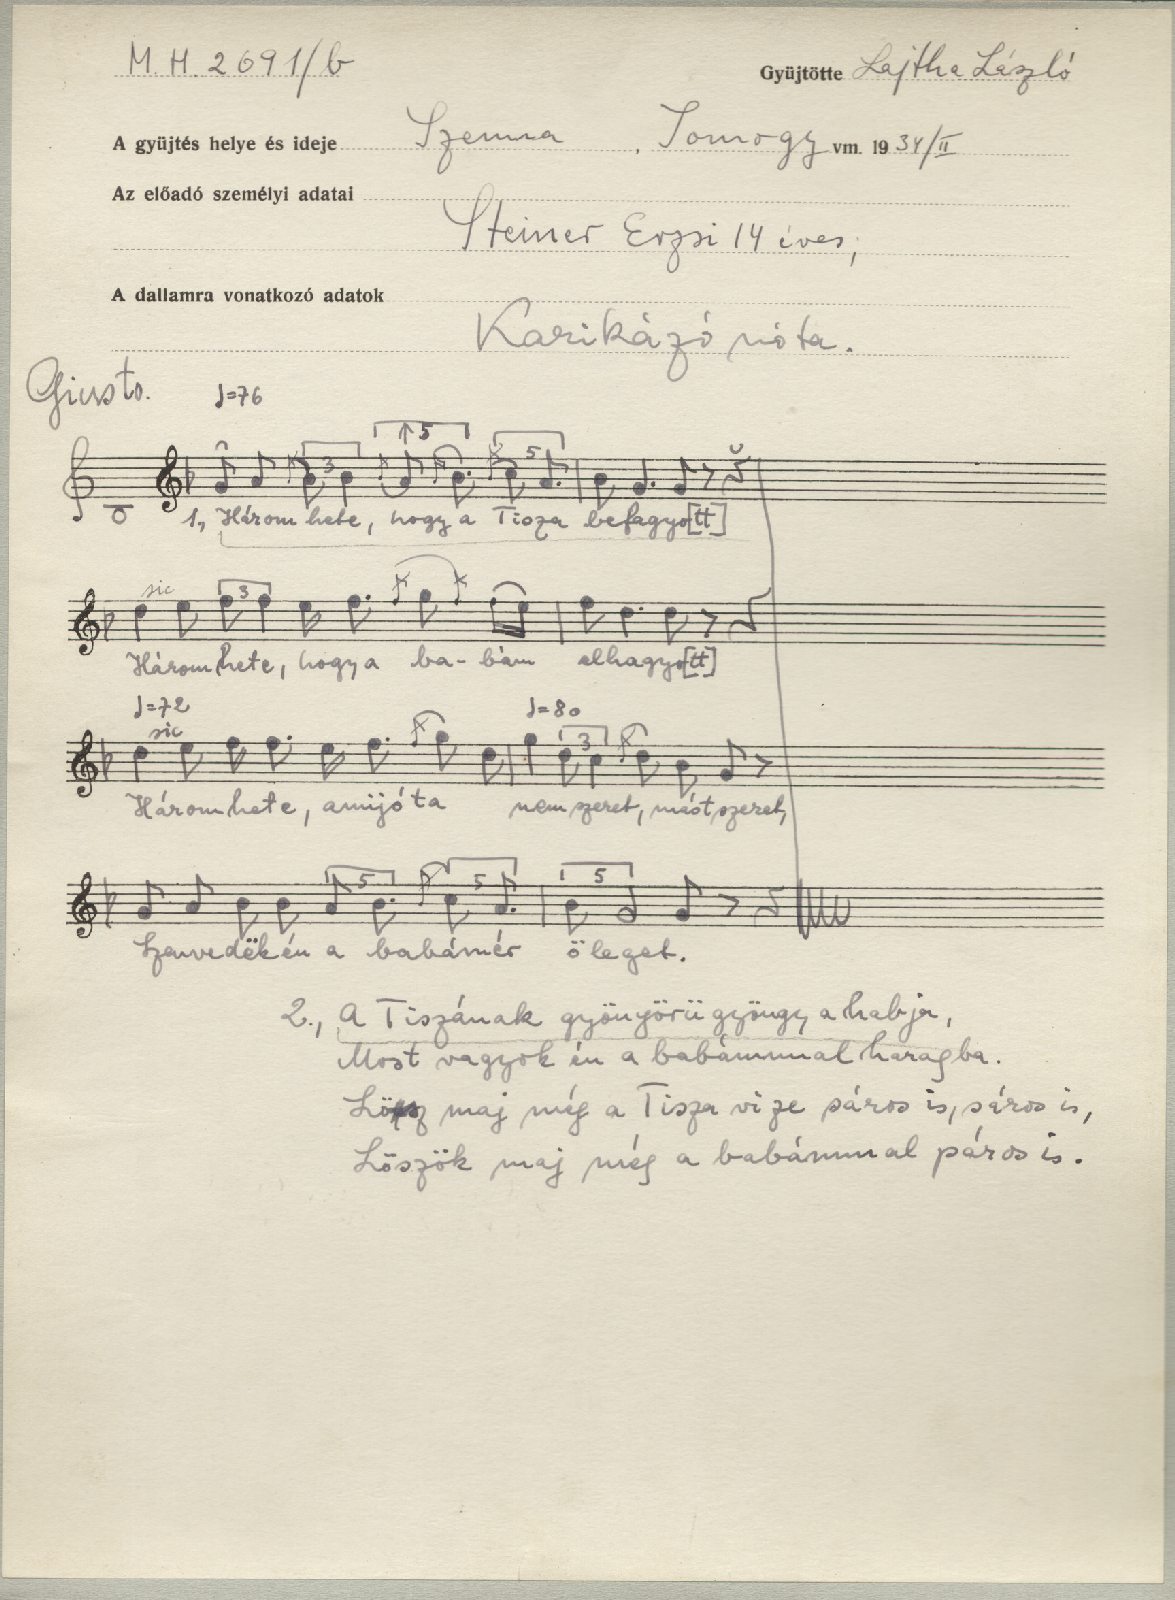 M. H. 2691/b
Gyüjtötte Lajtha László
A gyüjtés helye és ideje Szenna, Somogy vm. 1934/II
Az előadó személyi adatai
Steiner Erzsi 14 éves,
A dallamra vonatkozó adatok
Karikázó nóta.
Giusto. ♩=76
3 5 5
1., Három hete, hogy a Tisza befagyo[tt]
sic 3
Három hete, hogy a ba-bám elhagyo[tt]
♩=72 ♩=80
sic 3
Három hete, amijóta nem szeret, mást szeret,
5 5 5
Szenvedëk én a babámér öleget.
2., A Tiszának gyönyörü gyöngy a habja,
Most vagyok én a babámmal haragba.
Lösz maj még a Tisza vize sáros is, sáros is,
Löszök maj még a babámmal páros is.